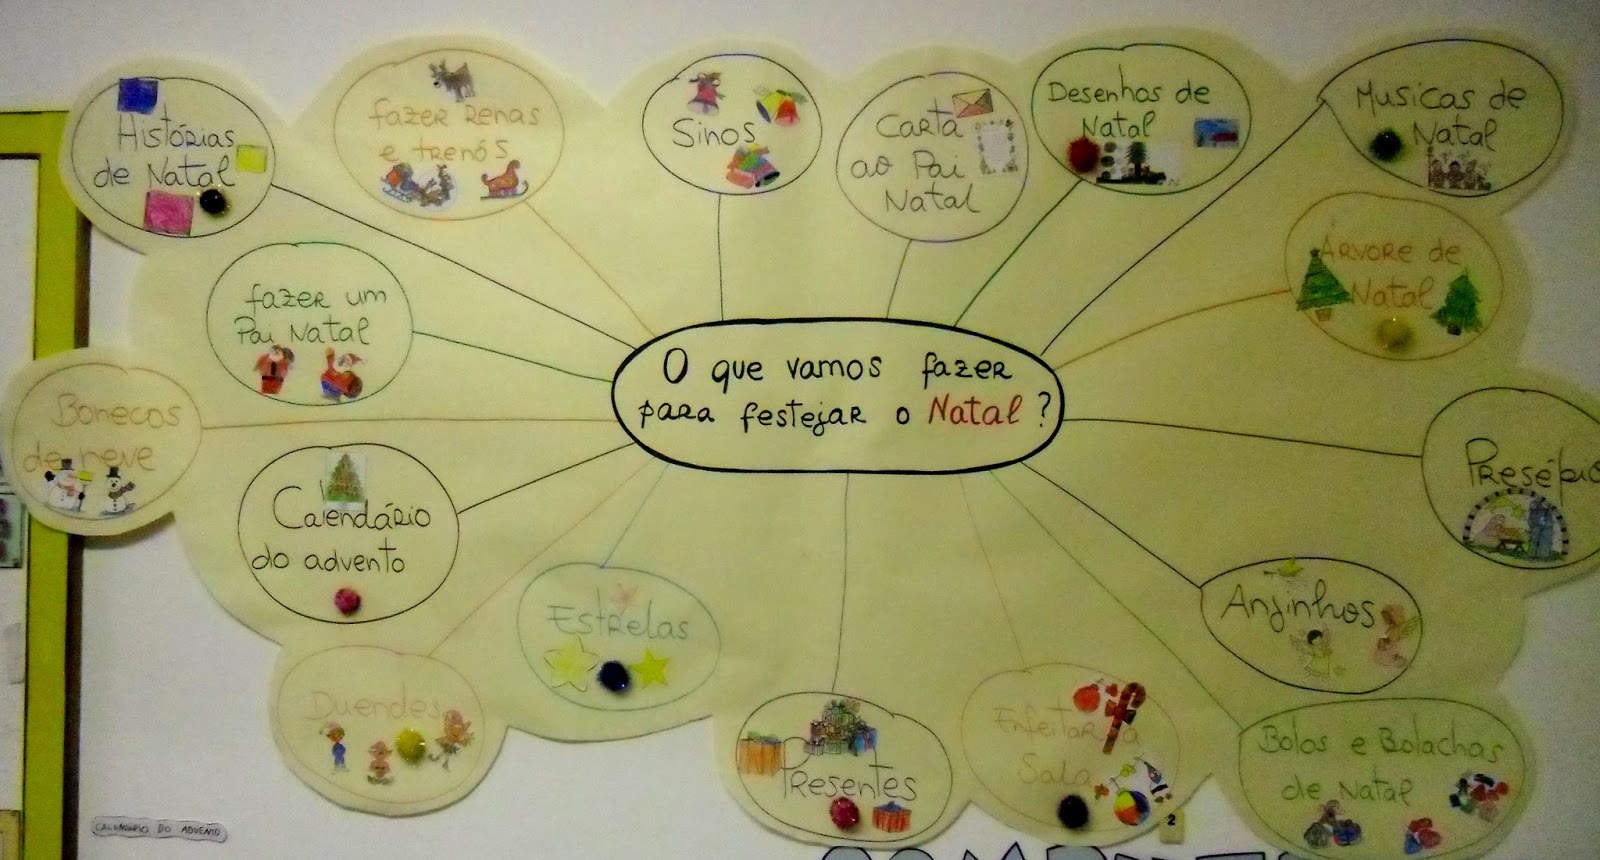 O que vamos fazer
para festejar o Natal?
Histórias
de Natal
fazer renas
e trenós
Sinos
Carta
ao Pai
Natal
Desenhos de
Natal
Musicas de
Natal
Árvore de
Natal
Presépio
Anjinhos
Bolos e Bolachas
de Natal
Enfeitar a
Sala
Presentes
Estrelas
Duendes
Calendário
do advento
Bonecos
de neve
fazer um
Pai Natal
CALENDÁRIO DO ADVENTO
2